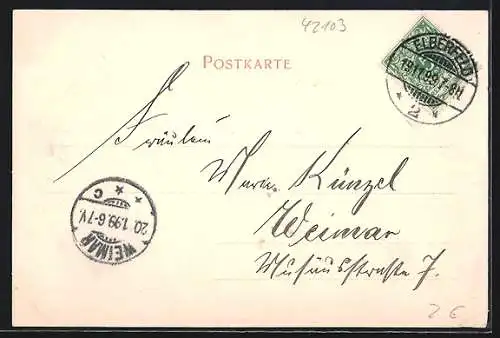 42103
POSTKARTE
ELBERFELD
19.1.99.7-8N.
* 2 *
Fräulein
Marie Künzel
Weimar
Musäusstraße 7.
WEIMAR
20.1.99.6-7V.
* C *
2 €